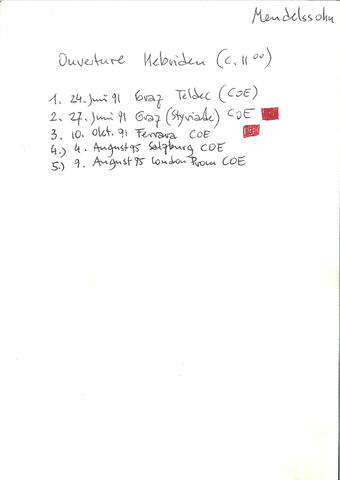 Mendelssohn
Ouverture Hebriden (c. 11 00)
1. 24. Juni 91 Graz Teldec (COE)
2. 27. Juni 91 Graz (Styriarte) COE
3. 10. Okt. 91 Ferrara COE
4.) 4. August 95 Salzburg COE
5.) 9. August 95 London Prom COE